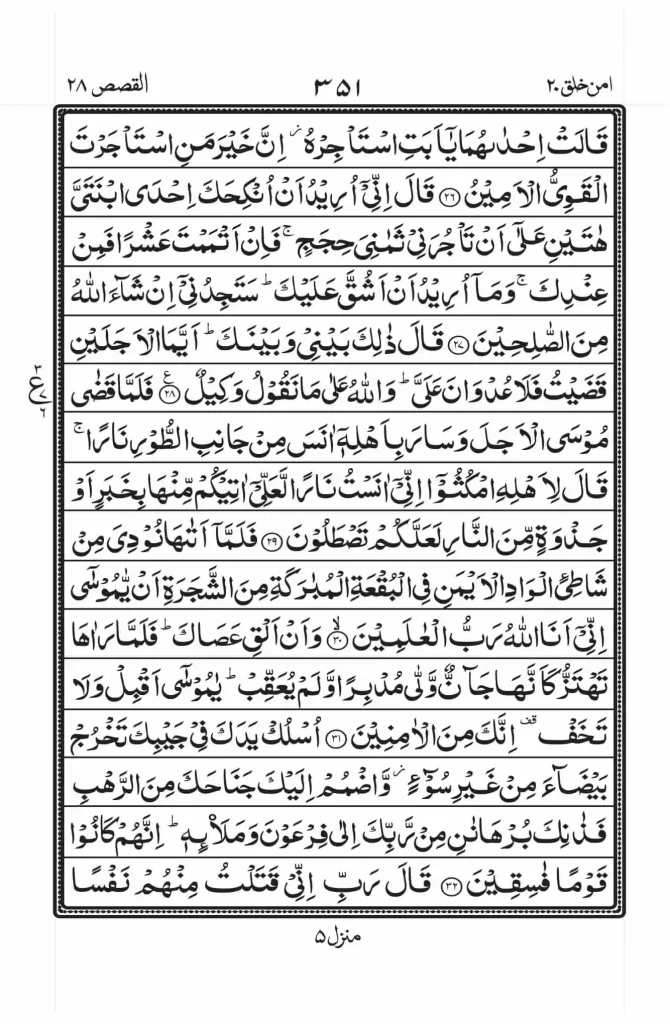 امن خلق ۲۰ ۳۵۱ القصص ۲۸
قَالَتْ اِحْدٰىهُمَا يٰۤاَبَتِ اسْتَاْجِرْهُ ز اِنَّ خَيْرَ مَنِ اسْتَاْجَرْتَ
الْقَوِىُّ الْاَمِيْنُ ﴿۲۶﴾ قَالَ اِنِّىْۤ اُرِيْدُ اَنْ اُنْكِحَكَ اِحْدَى ابْنَتَىَّ
هٰتَيْنِ عَلٰٓى اَنْ تَاْجُرَنِىْ ثَمٰنِىَ حِجَجٍ ۚ فَاِنْ اَتْمَمْتَ عَشْرًا فَمِنْ
عِنْدِكَ ۚ وَمَاۤ اُرِيْدُ اَنْ اَشُقَّ عَلَيْكَ ؕ سَتَجِدُنِىْۤ اِنْ شَآءَ اللّٰهُ
مِنَ الصّٰلِحِيْنَ ﴿۲۷﴾ قَالَ ذٰلِكَ بَيْنِىْ وَبَيْنَكَ ؕ اَيَّمَا الْاَجَلَيْنِ
قَضَيْتُ فَلَا عُدْوَانَ عَلَىَّ ؕ وَاللّٰهُ عَلٰى مَا نَقُوْلُ وَكِيْلٌ ﴿۲۸﴾ ع فَلَمَّا قَضٰى
۳ ع ۷ ۶
مُوْسَى الْاَجَلَ وَسَارَ بِاَهْلِهٖۤ اٰنَسَ مِنْ جَانِبِ الطُّوْرِ نَارًا ۚ
قَالَ لِاَهْلِهِ امْكُثُوْۤا اِنِّىْۤ اٰنَسْتُ نَارًا لَّعَلِّىْۤ اٰتِيْكُمْ مِّنْهَا بِخَبَرٍ اَوْ
جَذْوَةٍ مِّنَ النَّارِ لَعَلَّكُمْ تَصْطَلُوْنَ ﴿۲۹﴾ فَلَمَّاۤ اَتٰىهَا نُوْدِىَ مِنْ
شَاطِئِ الْوَادِ الْاَيْمَنِ فِى الْبُقْعَةِ الْمُبٰرَكَةِ مِنَ الشَّجَرَةِ اَنْ يّٰمُوْسٰٓى
اِنِّىْۤ اَنَا اللّٰهُ رَبُّ الْعٰلَمِيْنَ ﴿۳۰﴾ ۙ وَاَنْ اَلْقِ عَصَاكَ ؕ فَلَمَّا رَاٰهَا
تَهْتَزُّ كَاَنَّهَا جَآنٌّ وَّلّٰى مُدْبِرًا وَّلَمْ يُعَقِّبْ ؕ يٰمُوْسٰٓى اَقْبِلْ وَلَا
تَخَفْ قف اِنَّكَ مِنَ الْاٰمِنِيْنَ ﴿۳۱﴾ اُسْلُكْ يَدَكَ فِىْ جَيْبِكَ تَخْرُجْ
بَيْضَآءَ مِنْ غَيْرِ سُوْٓءٍ ز وَّاضْمُمْ اِلَيْكَ جَنَاحَكَ مِنَ الرَّهْبِ
فَذٰنِكَ بُرْهَانٰنِ مِنْ رَّبِّكَ اِلٰى فِرْعَوْنَ وَمَلَا۟ئِهٖ ؕ اِنَّهُمْ كَانُوْا
قَوْمًا فٰسِقِيْنَ ﴿۳۲﴾ قَالَ رَبِّ اِنِّىْ قَتَلْتُ مِنْهُمْ نَفْسًا
منزل ۵